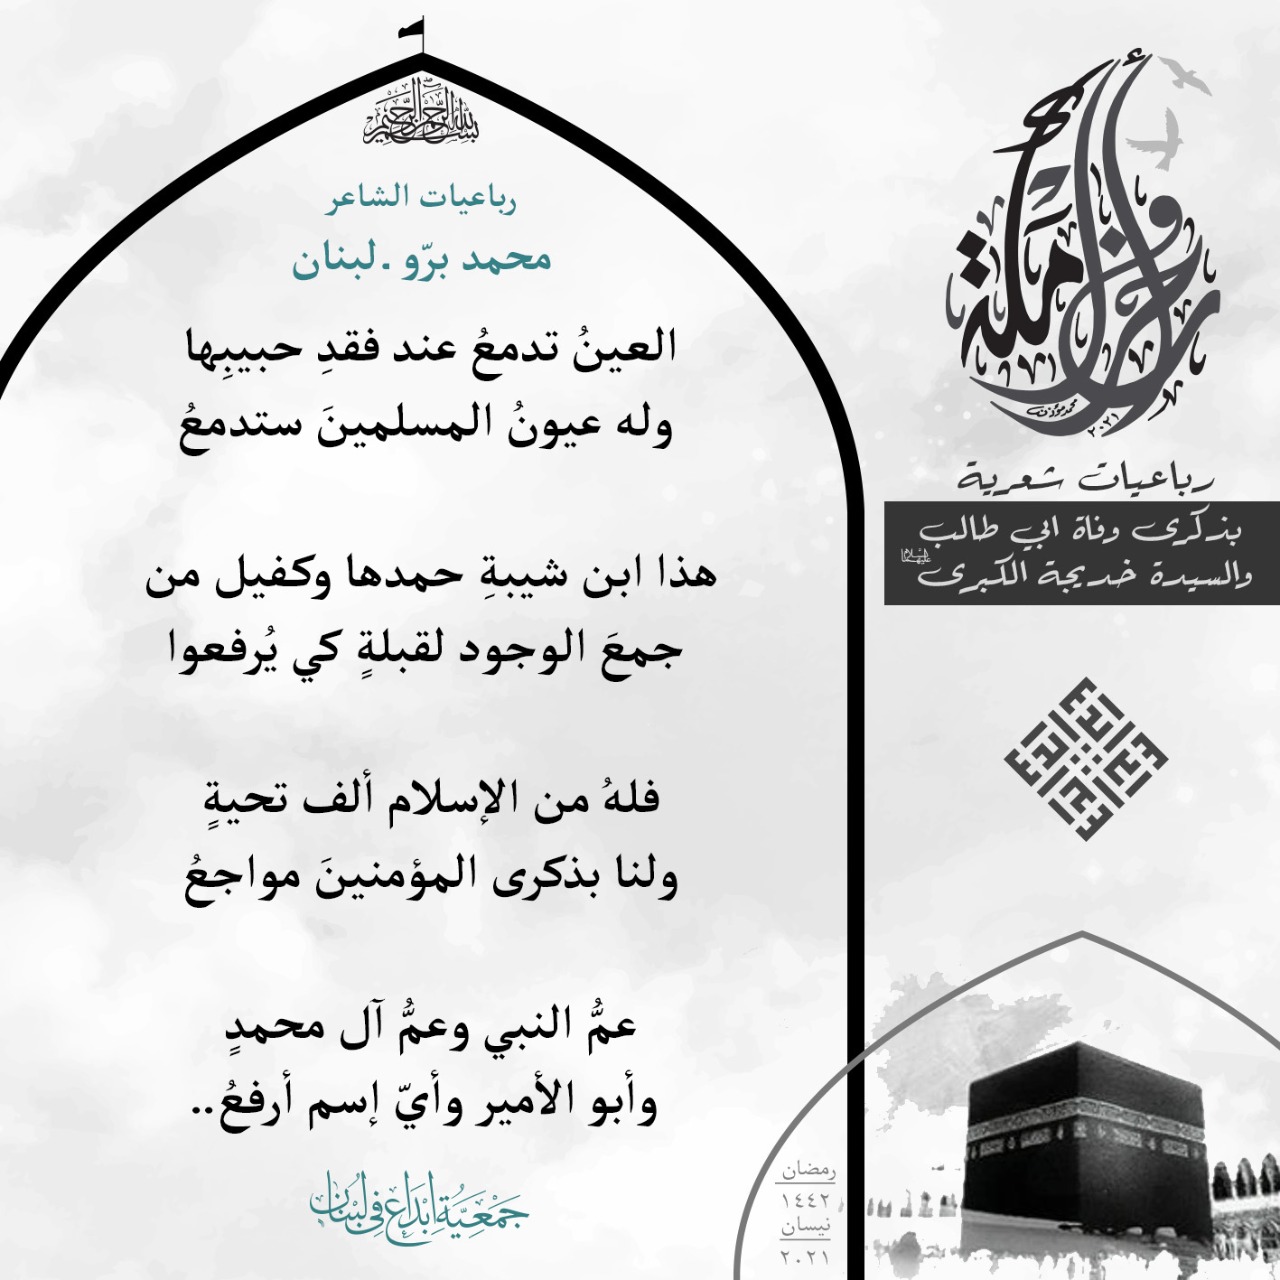 بسم الله الرحمن الرحيم
رباعيات الشاعر
محمد برّو .لبنان
العينُ تدمعُ عند فقدِ حبيبِها
وله عيونُ المسلمينَ ستدمعُ
هذا ابن شيبةِ حمدها وكفيل من
جمعَ الوجود لقبلةٍ كي يُرفعوا
فلهُ من الإسلام ألف تحيةٍ
ولنا بذكرى المؤمنينَ مواجعُ
عمُّ النبي وعمُّ آل محمدٍ
وأبو الأمير وأيّ إسم أرفعُ..
جَمْعِيَّةُ إبْدَاع فِي لُبْنَان
محمد مؤذن
٢٠٢١
رباعيات شعرية
بذكرى وفاة ابي طالب
والسيدة خديجة الكبرى
رمضان
١٤٤٢
نيسان
٢٠٢١